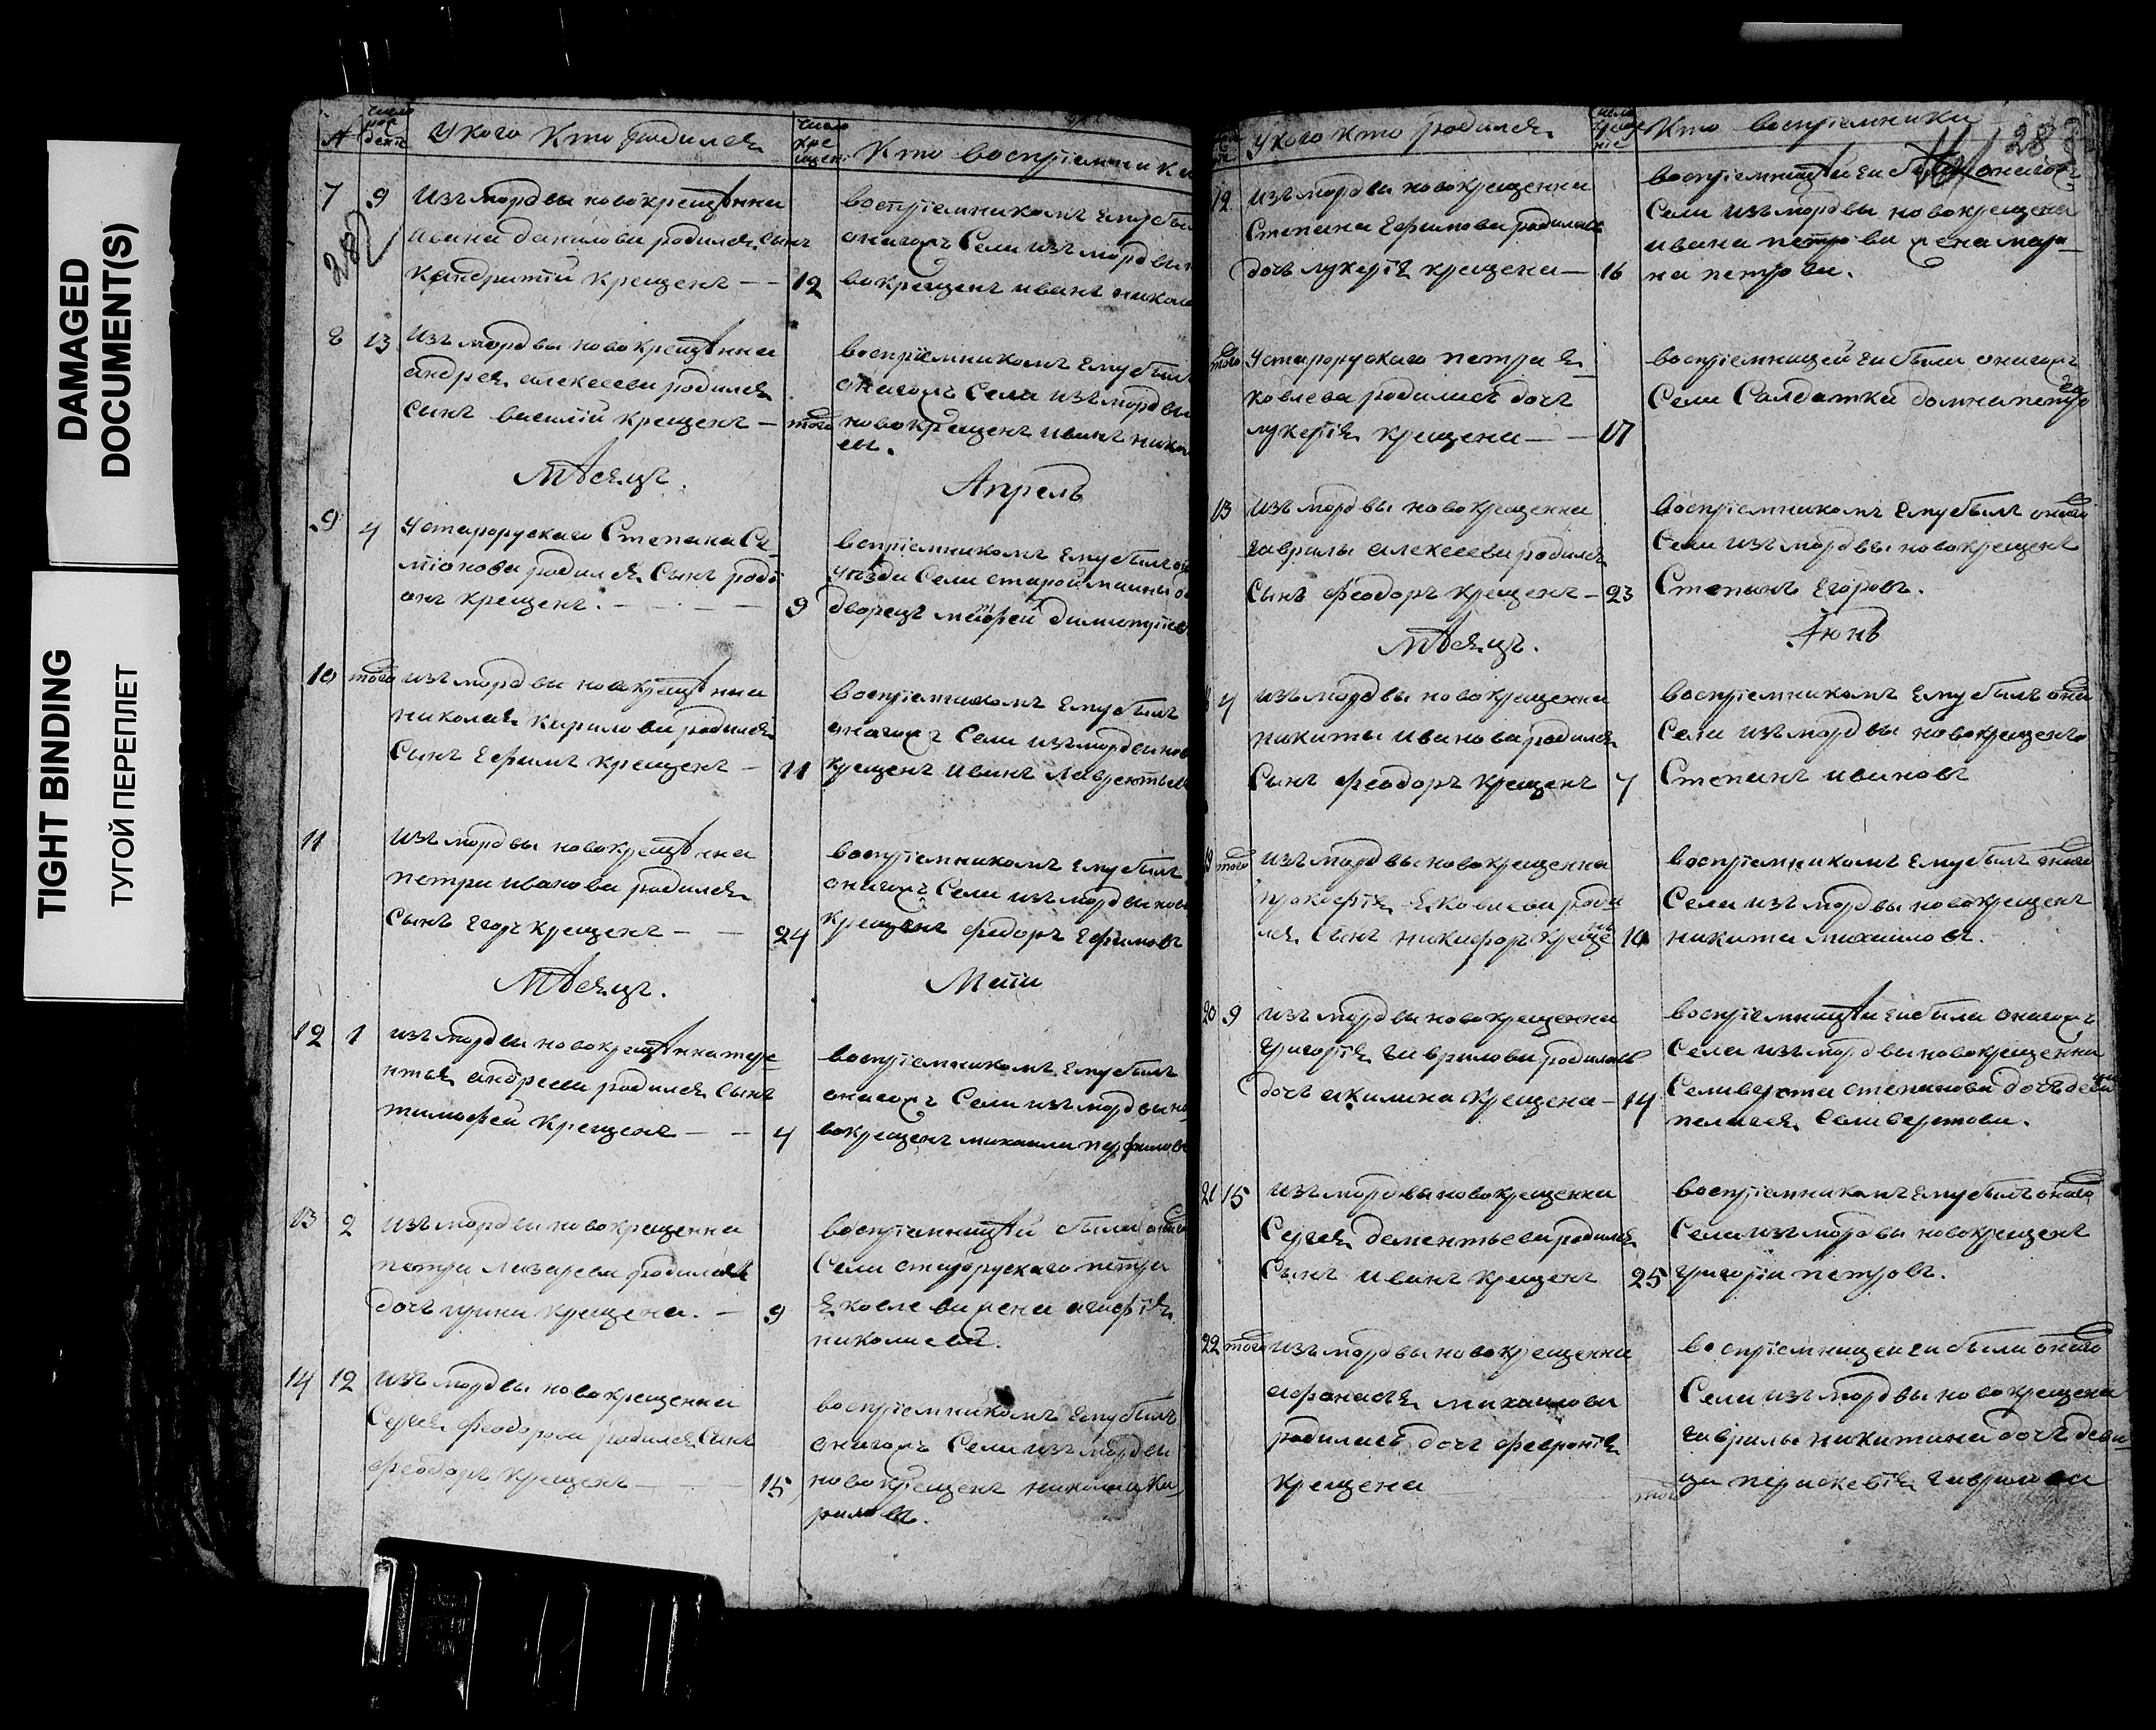 DAMAGED
DOCUMENT(S)
TIGHT BINDING
ТУГОЙ ПЕРЕПЛЕТ
У кого Кто родился
число кре щен
Кто восприемники
7 9 Изъ мордвы новокрещѣнна
ивана данилова родился сынъ
кандратій крещенъ — — 12
восприемникомъ Емубы
онагожъ Села изъ мордвы
вокрещенъ иванъ никола
282
8 13 Изъ мордвы новокрещѣнна
андрея алексеева родился
сынъ василій крещенъ — того
восприемникомъ Емубылъ
онагожъ Села изъ мордвы
новокрещенъ иванъ никола
евъ.
Мѣсяцъ. Апрель
9 4 Устароруского Степана Се
міонова родился Сынъ роди
онъ крещенъ. — — — 9
воспріемникомъ Емубылъ
уезда Села старой маины
дворецъ матфей димитріев
10 того изъ мордвы новокрещѣнна
николая кирилова родился
Сынъ Ефимъ крещенъ — 11
Воспріемникомъ Емубылъ
онагожъ Села изъ мордвы нов
крещенъ иванъ лаврентьев
11 изъ мордвы новокрещѣнна
петра иванова родился
сынъ Егоръ крещенъ — — 24
воспріемникомъ Емубылъ
онагожъ Села изъ мордвы ново
крещенъ федоръ Ефимовъ
Мѣсяцъ. Маія
12 1 изъ мордвы новокрещѣнна тере
нтья андреева родился Сынъ
тимофей крещенъ — — 4
воспріемникомъ Емубылъ
онагожъ Села изъ мордвы но
вокрещенъ михаила перфиловъ
13 2 изъ мордвы новокрещенна
петра лазарева родилась
дочь ирина крещена. — 9
воспріемницѣй была онаго
Села старорускаго петра
Яковлева жена агафія
николаева.
14 12 изъ мордвы новокрещенна
Сергея феодорова родился Сынъ
феодоръ крещенъ — — 15
воспріемникомъ Емубылъ
онагожъ Села изъ мордвы
новокрещенъ николай Ки
риловъ.
У кого кто родился
Кто воспріемники
283
12 изъ мордвы новокрещенна
Степана Ефимова родилась
дочь лукерія крещена — 16
воспріемницѣй Еи была онагожъ
Села изъ мордвы новокрещена
ивана петрова жена мари
на петрова.
того Устарорускаго петра я
ковлева родилась дочь
лукерія крещена — — 17
воспріемницей Еи была онагожъ
Села Салдатка домна петро
ва
13 изъ мордвы новокрещенна
гаврилы алексеева родился
Сынъ феодоръ крещенъ — 23
Воспріемникомъ Емубылъ онаго
Села изъ мордвы новокрещенъ
Степанъ Егоровъ.
Мѣсяцъ. Июнь
4 изъ мордвы новокрещенна
никиты иванова родился
Сынъ феодоръ крещенъ 7
воспріемникомъ Емубылъ онаго
Села изъ мордвы новокрещенъ
Степанъ ивановъ
19 того изъ мордвы новокрещенна
прокофія яковлева роди
лся Сынъ никифоръ креще нъ 10
воспріемникомъ Емубылъ онаго
Села изъ мордвы новокрещенъ
никита михаиловъ.
20 9 изъ мордвы новокрещенна
григорія гаврилова родилась
дочь акилина крещена — 14
воспріемницѣй Еи была онагожъ
Села изъ мордвы новокрещенна
Селиверста степанова дочь деви
пелагея Селиверстова.
21 15 изъ мордвы новокрещенна
Сергея дементьева родился
Сынъ иванъ крещенъ 25
воспріемникомъ Емубылъ онаго
Села изъ мордвы новокрещенъ
григорій петровъ.
22 того изъ мордвы новокрещенна
афанасія михаилова
родилась дочь февронія
крещена того
воспріемницей Еи была онаго
Села изъ мордвы новокрещена
гаврилы никитина дочь деви
ца параскевія гаврилова